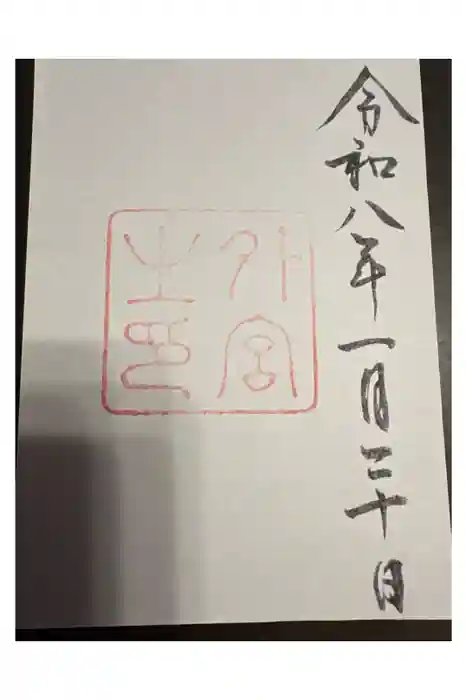 令和八年一月三十日
外宮
之印